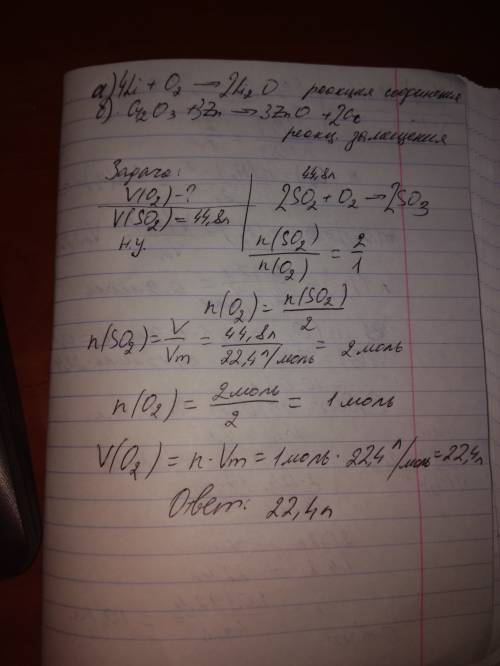 а) 4Li + O₂ → 2Li₂O реакция соединения
б) Cr₂O₃ + 3Zn → 3ZnO + 2Cr
реакц. замещения
Задача:
V(O₂) - ?
V(SO₂) = 44,8л
н.у.
44,8л
2SO₂ + O₂ → 2SO₃
n(SO₂)/n(O₂) = 2/1
n(O₂) = n(SO₂)/2
n(SO₂) = V/Vm = 44,8л/22,4 л/моль = 2 моль
n(O₂) = 2моль/2 = 1 моль
V(O₂) = n · Vm = 1 моль · 22,4 л/моль = 22,4л
Ответ: 22,4л